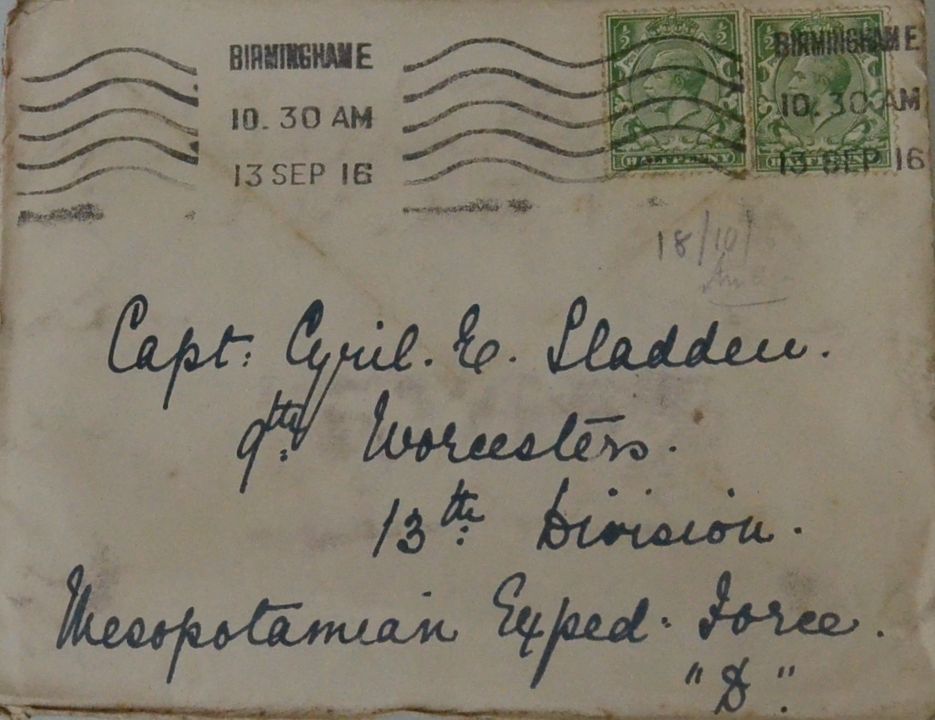 BIRMINGHAM E BIRMINGHAM E
10. 30 AM 10. 30 AM
13 SEP 16 13 SEP 16
½ ½
HALFPENNY
18/10/
Capt: Cyril. E. Sladden.
9th: Worcesters.
13th: Division.
Mesopotamian Exped. Force.
"D".